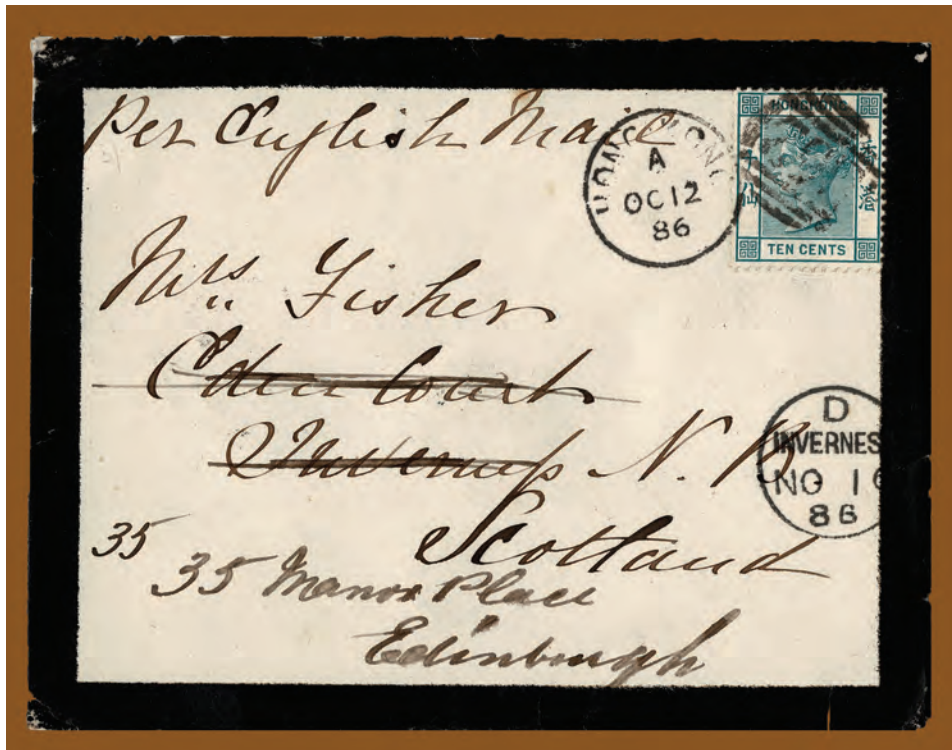 Per English Mail
HONG KONG
A
OC 12
86
HONG KONG
TEN CENTS
Mrs Fisher
Eden Court
Inverness N. B.
Scotland
D
INVERNESS
NO 16
86
35
35 Manor Place
Edinburgh